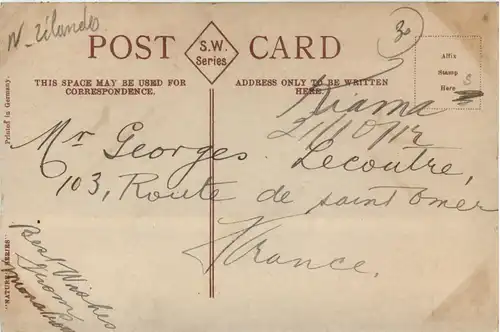 N. Zélande
30
POST CARD
S.W.
Series
Affix
Stamp
Here
THIS SPACE MAY BE USED FOR
CORRESPONDENCE.
ADDRESS ONLY TO BE WRITTEN
HERE.
Printed in Germany.
Kiama
21/10/12
Mr Georges Lecoutre,
103, Route de saint Omer
France.
"NATURE" SERIES"
Best Wishes
from